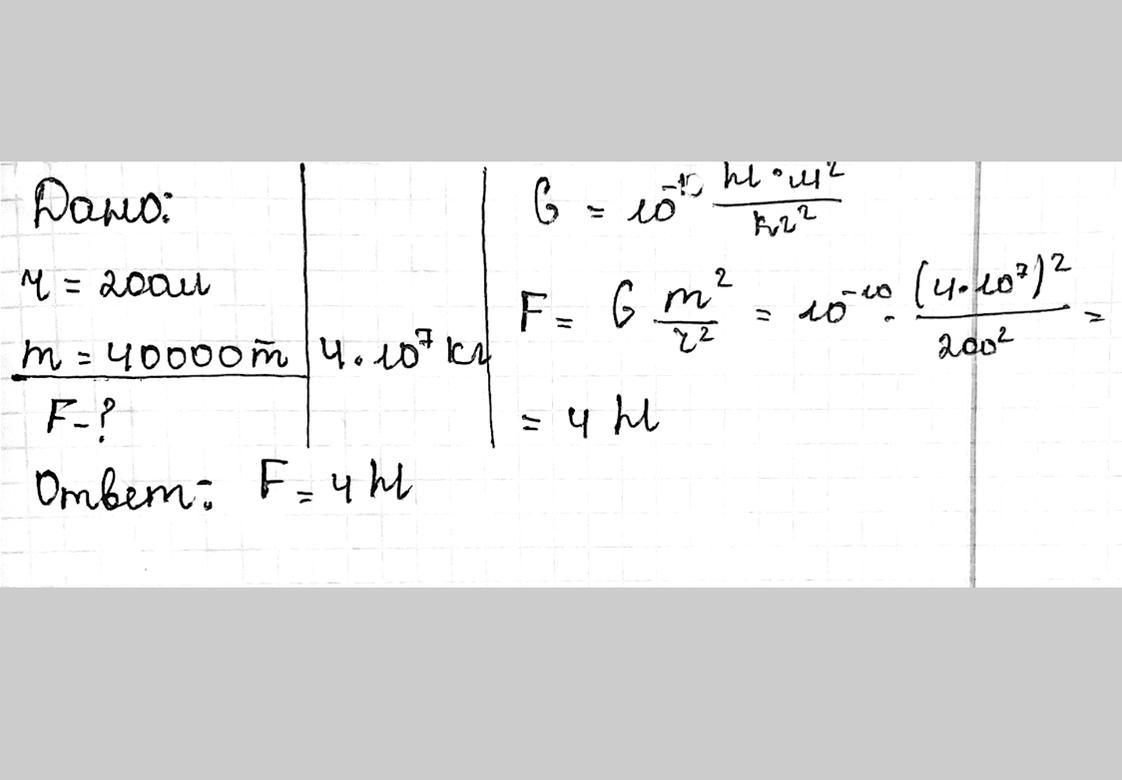 Дано:
r = 200м
m = 40000т | 4·10⁷ кг
F-?
G = 10⁻¹⁰ Н·м²/кг²
F = G m²/r² = 10⁻¹⁰ · (4·10⁷)²/200² =
= 4 Н
Ответ: F = 4 Н